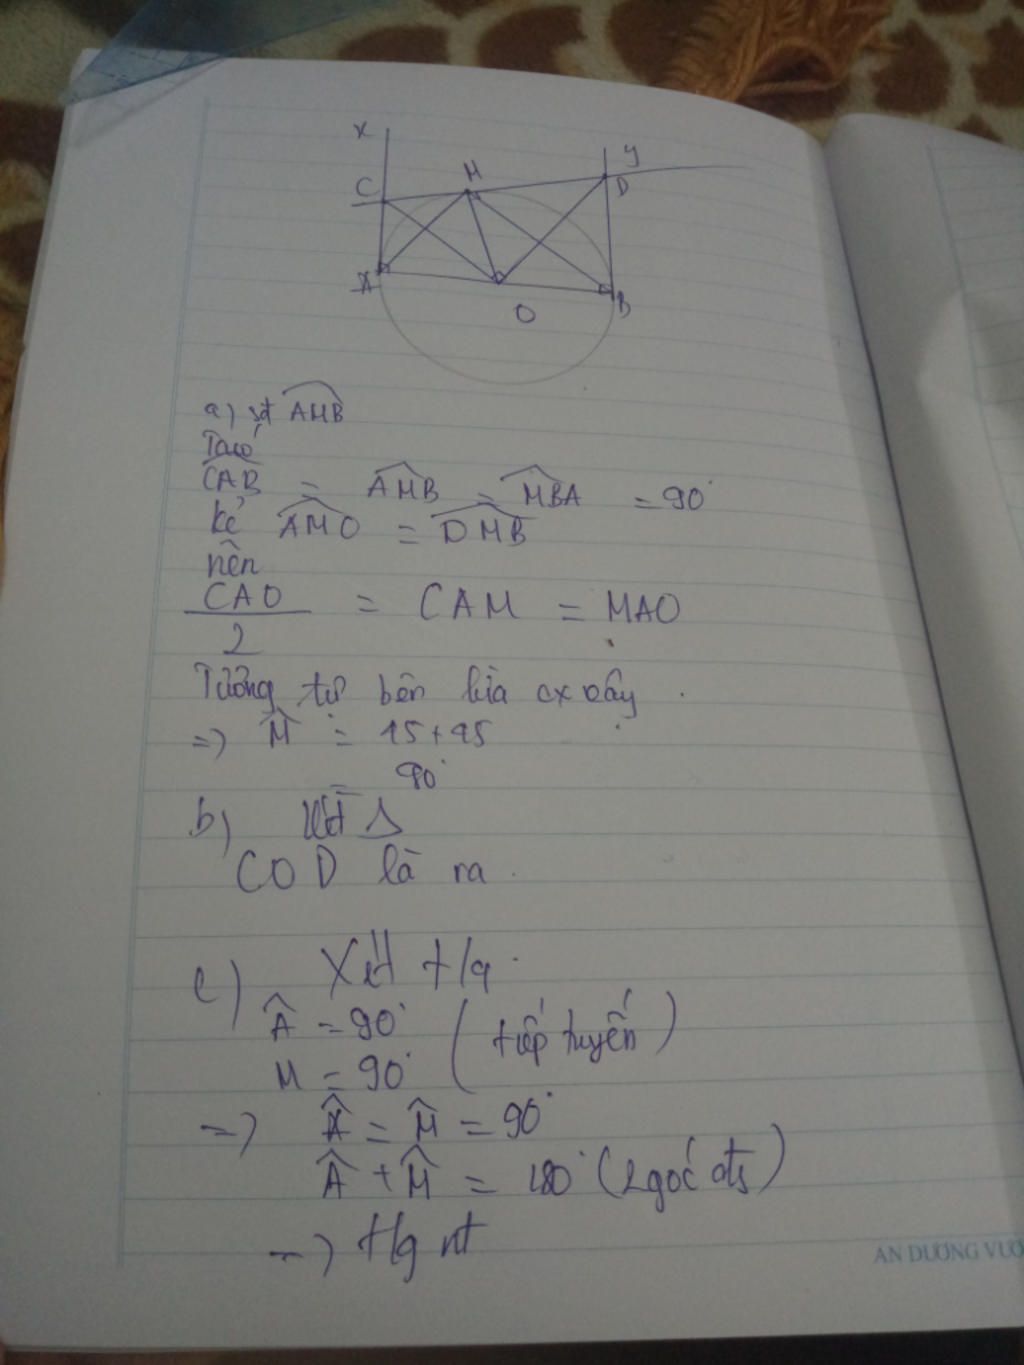 x
y
C
M
D
A
O
B
a) sđ AMB
Ta có
CAB = AMB = MBA = 90°
kẻ AMO = DMB
nên
CAO / 2 = CAM = MAO
Tương tự bên kia cx vậy.
=> M = 45 + 45
= 90°
b) Xét Δ
COD là ra.
c) Xét t/g.
A = 90° (tiếp tuyến)
M = 90°
=> A = M = 90°
A + M = 180° (2 góc đ)
=> t/g nt
AN DƯƠNG VƯƠ